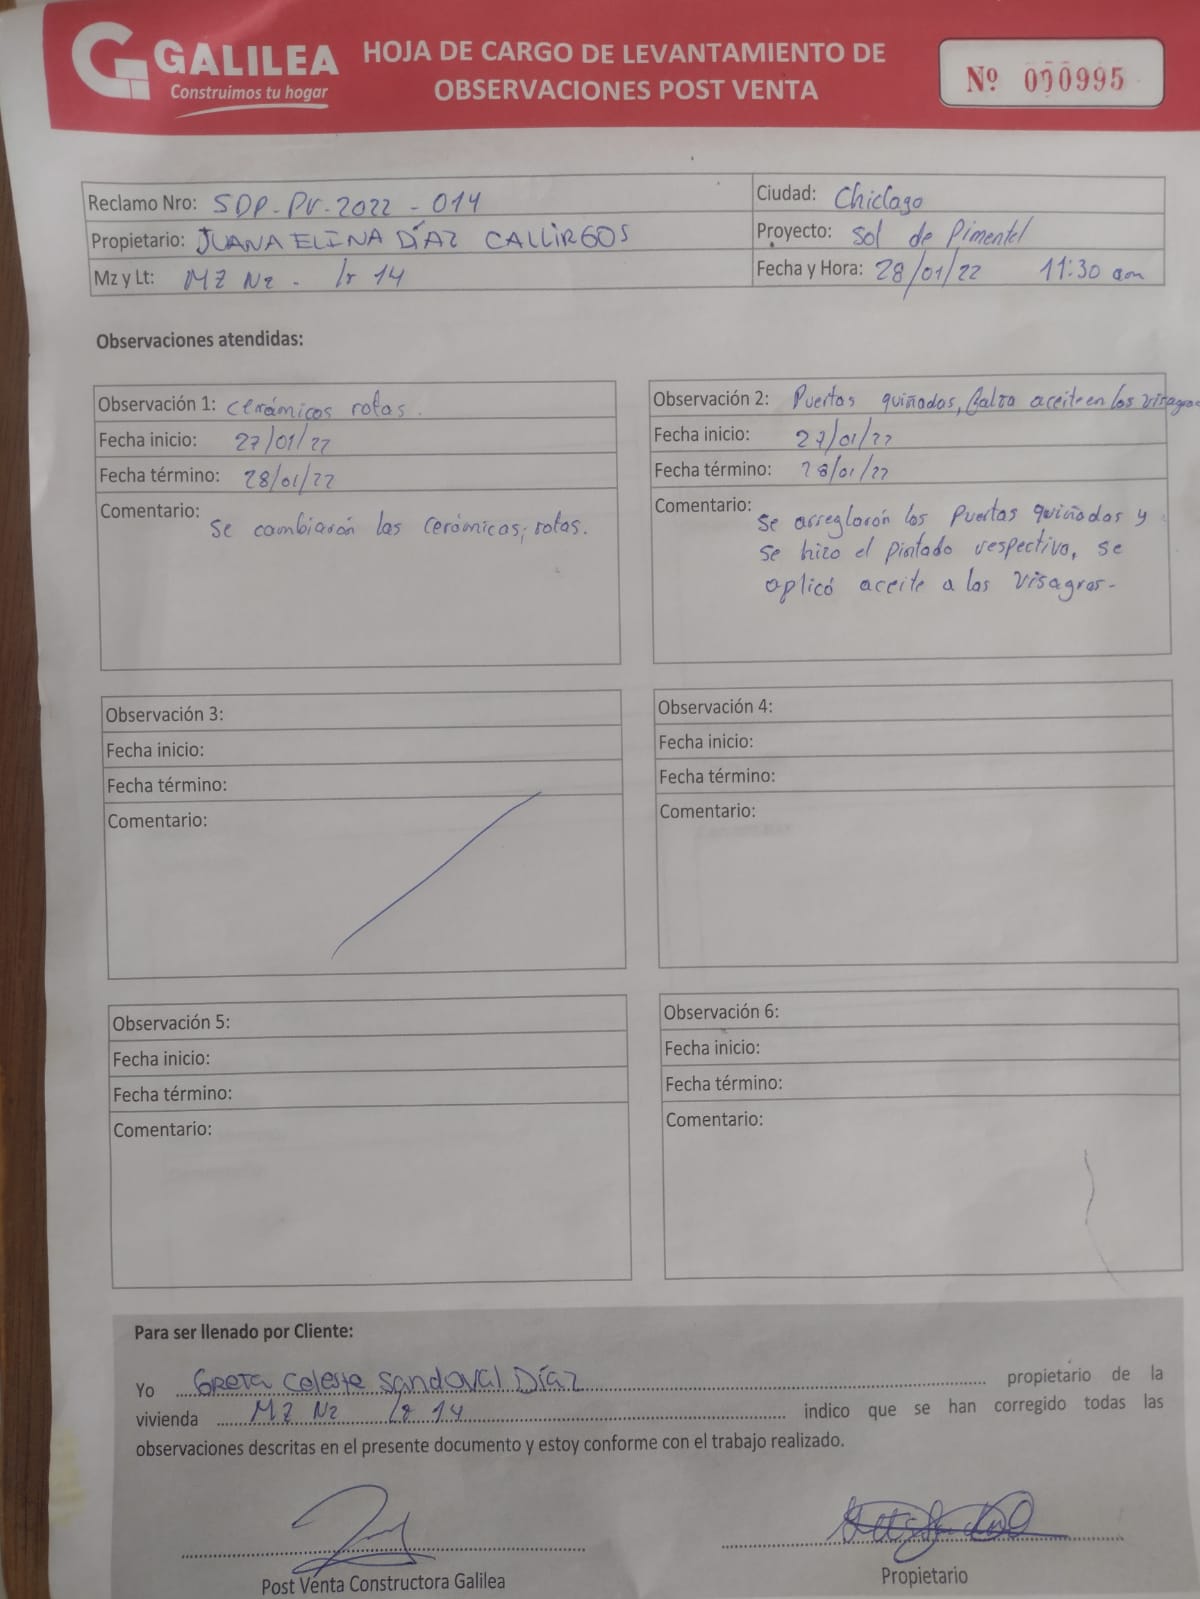 GALILEA
Construimos tu hogar
HOJA DE CARGO DE LEVANTAMIENTO DE
OBSERVACIONES POST VENTA
Nº 000995
Reclamo Nro: SDP-PV-2022-014
Ciudad: Chiclayo
Propietario: JUANA ELINA DÍAZ CALLIRGOS
Proyecto: Sol de Pimentel
Mz y Lt: MZ N2 - lt 14
Fecha y Hora: 28/01/22 11:30 am
Observaciones atendidas:
Observación 1: cerámicos rotas.
Fecha inicio: 27/01/22
Fecha término: 28/01/22
Comentario: Se cambiarón las cerámicas, rotas.
Observación 2: Puertas quiñadas, falta aceite en las visagras
Fecha inicio: 27/01/22
Fecha término: 28/01/22
Comentario: Se arreglarón las puertas quiñadas y
se hizo el pintado respectivo, se
aplicó aceite a las visagras-
Observación 3:
Fecha inicio:
Fecha término:
Comentario:
Observación 4:
Fecha inicio:
Fecha término:
Comentario:
Observación 5:
Fecha inicio:
Fecha término:
Comentario:
Observación 6:
Fecha inicio:
Fecha término:
Comentario:
Para ser llenado por Cliente:
Yo Greta Celeste Sandoval Díaz propietario de la
vivienda MZ N2 lt 14 indico que se han corregido todas las
observaciones descritas en el presente documento y estoy conforme con el trabajo realizado.
Post Venta Constructora Galilea
Propietario